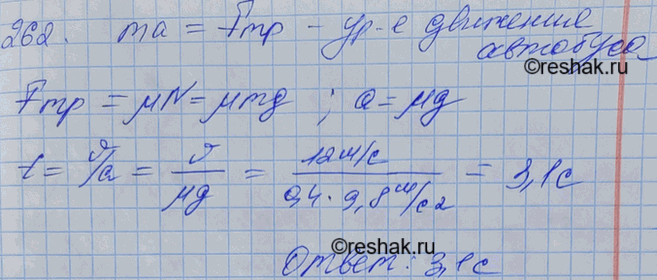 262. ma = Fтр - ур-е движение
автобуса
©reshak.ru
Fтр = μN = μmg ; a = μg
t = υ/a = υ/μg = 12м/с / 0,4 · 9,8 м/с2 = 3,1с
©reshak.ru
Ответ: 3,1с